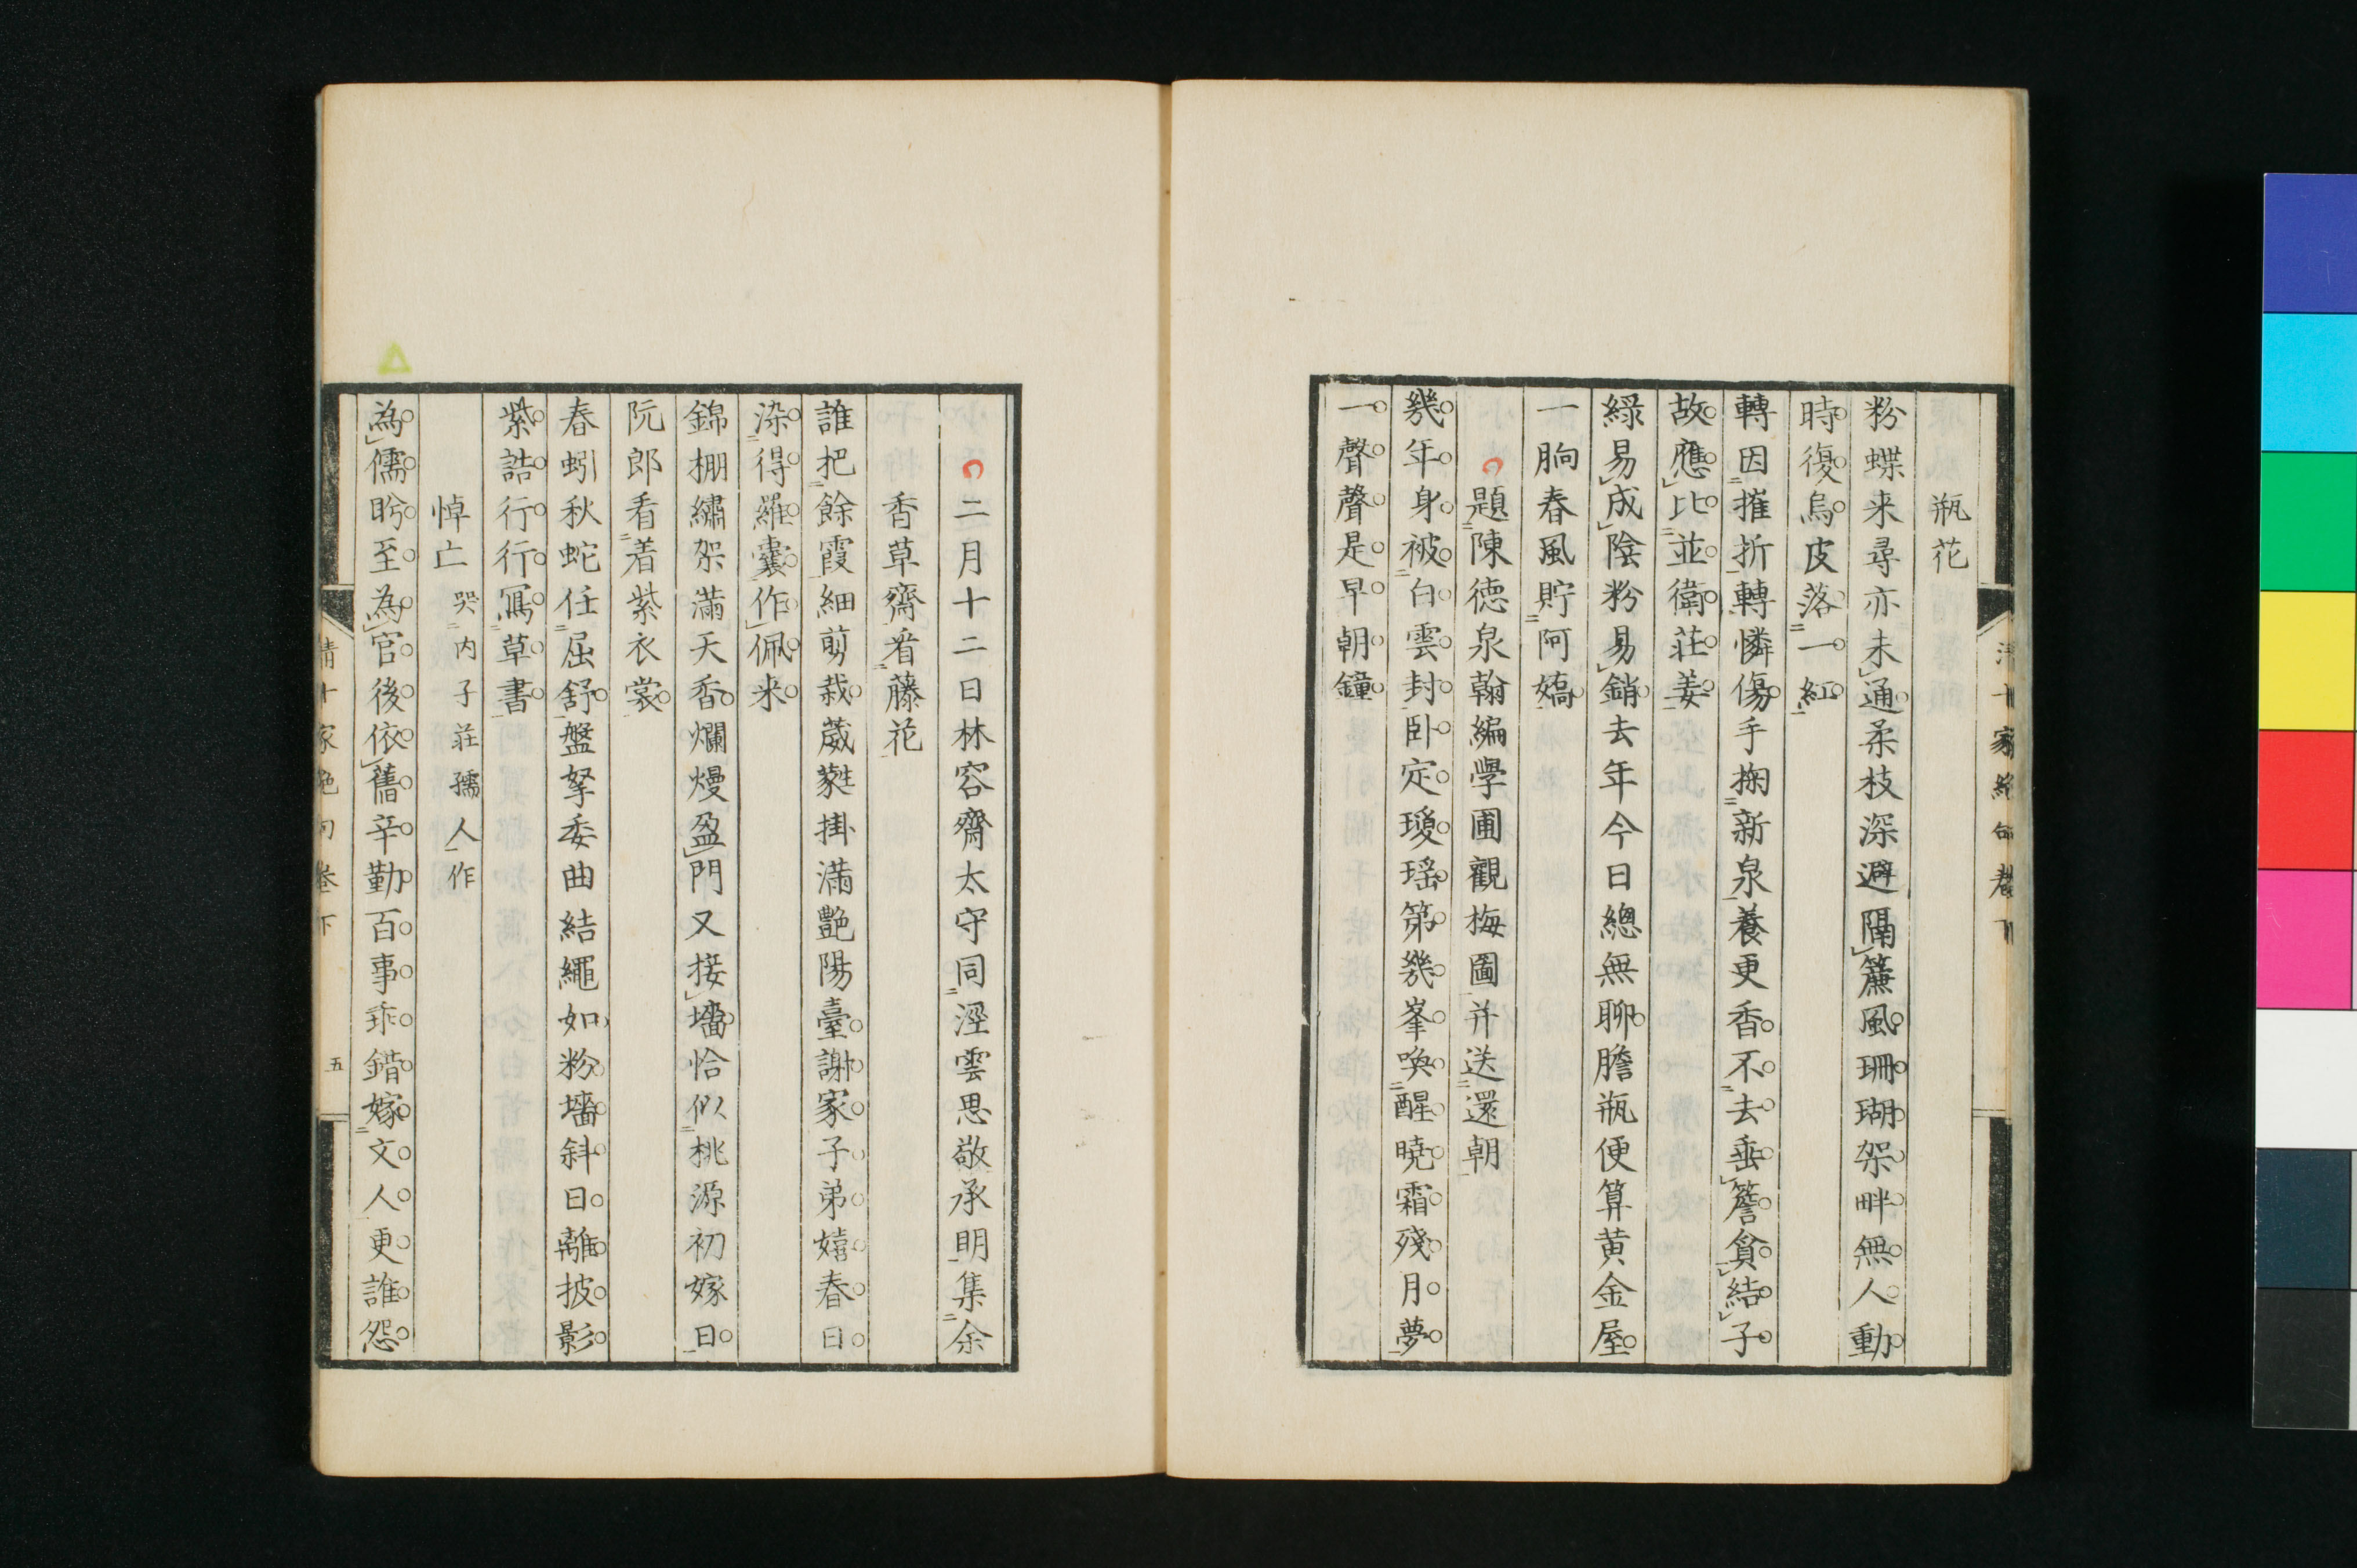 瓶花
粉蝶来尋亦未通柔枝深避隔簾風珊瑚架畔無人動
時復烏皮落一紅
轉因摧折轉憐傷手掬新泉養更香不去垂簷貪結子
故應比並衛莊姜
綠易成陰粉易銷去年今日總無聊膽瓶便算黄金屋
一晌春風貯阿嬌
題陳德泉翰編學圃觀梅圖并送還朝
幾年身被白雲封卧定瓊瑶第幾峯喚醒曉霜殘月夢
一聲聲是早朝鐘
清十家絶句卷下
二月十二日林容齋太守同溼雲思敬承明集余
香草齋看藤花
誰把餘霞細剪栽葳蕤掛滿艷陽臺謝家子弟嬉春日
染得羅囊作佩来
錦棚繡架滿天香爛熳盈門又接墻恰似桃源初嫁日
阮郎看着紫衣裳
春蚓秋蛇任屈舒盤拏委曲結繩如粉墻斜日離披影
紫誥行行寫草書
悼亡 哭内子莊孺人作
為儒盻至為官後依舊辛勤百事乖錯嫁文人更誰怨
清十家絶句卷下 五